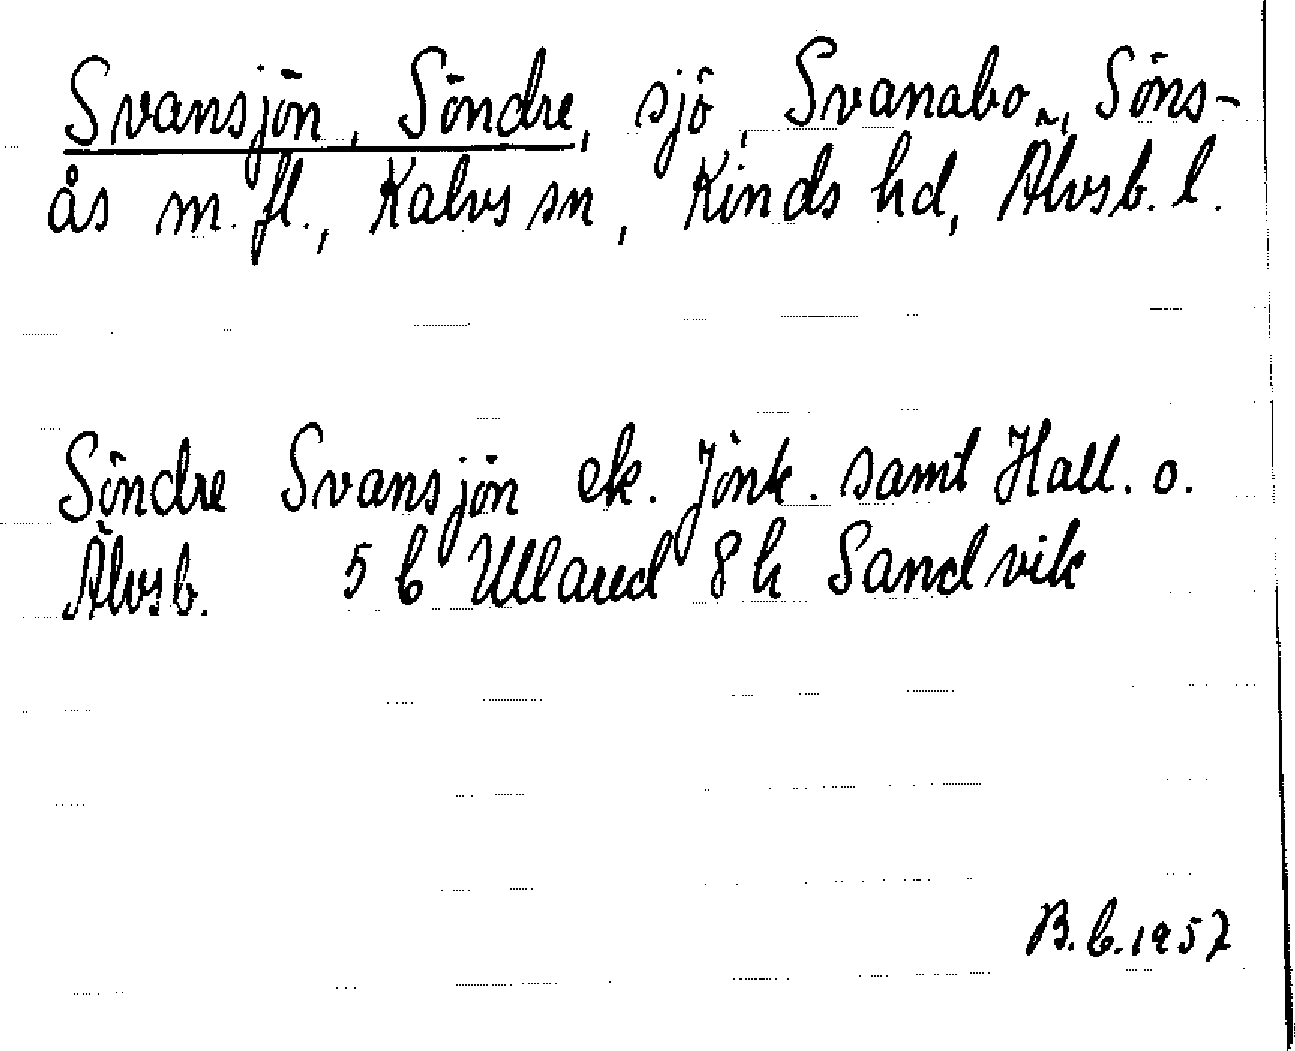 Svansjön, Söndre, sjö, Svanabo, Söns-
ås m. fl., Kalvs sn, Kinds hd, Älvsb. l.
Söndre Svansjön ek. Jönk. samt Hall. o.
Älvsb. 5 b Ullared 8 h Sandvik
B.b.1957